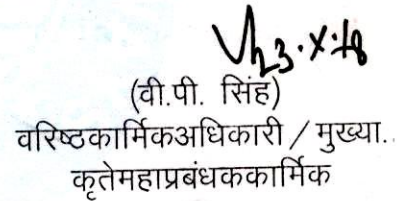 23.X.18
(वी.पी. सिंह)
वरिष्ठकार्मिकअधिकारी / मुख्या..
कृतेमहाप्रबंधककार्मिक